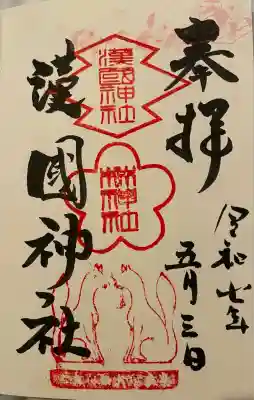 奉拝
令和七年
五月三日
漢國神社
漢國神社
林神社